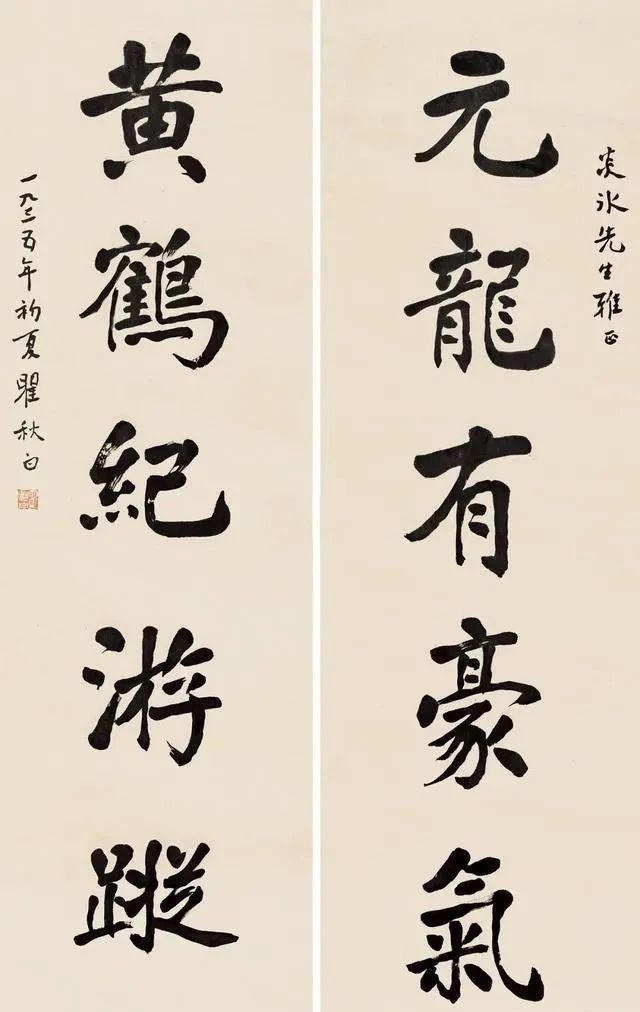 炎冰先生雅正
元龍有豪氣
黃鶴紀游蹤
一九三五年初夏瞿秋白